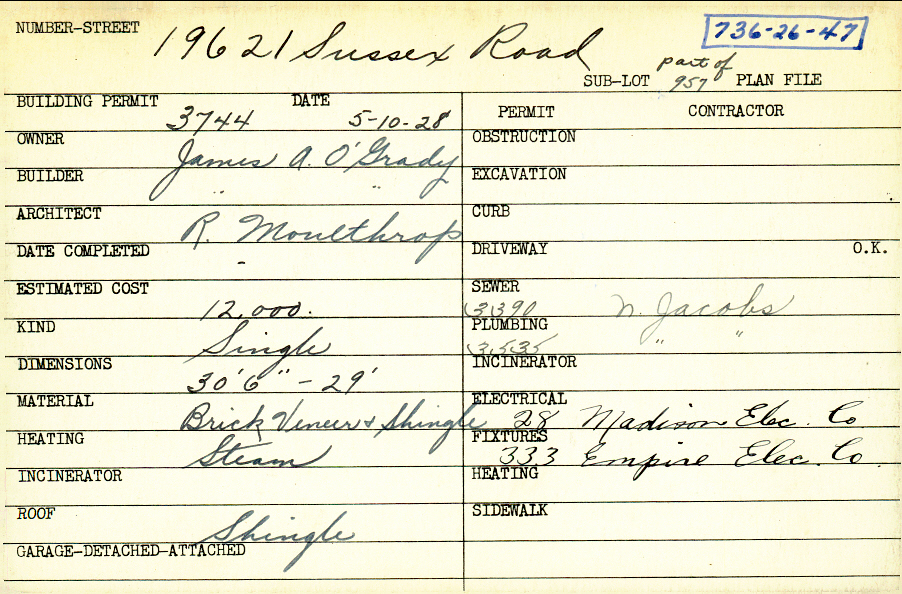 NUMBER-STREET 19621 Sussex Road 736-26-47
SUB-LOT part of 957 PLAN FILE
BUILDING PERMIT 3744 DATE 5-10-28
OWNER James A. O'Grady
BUILDER " "
ARCHITECT R. Moulthrop
DATE COMPLETED -
ESTIMATED COST 12,000.
KIND Single
DIMENSIONS 30'6" - 29'
MATERIAL Brick Veneer & Shingle
HEATING Steam
INCINERATOR
ROOF Shingle
GARAGE-DETACHED-ATTACHED
PERMIT CONTRACTOR
OBSTRUCTION
EXCAVATION
CURB
DRIVEWAY O.K.
SEWER 3390 N. Jacobs
PLUMBING 3535 " "
INCINERATOR
ELECTRICAL 28 Madison Elec. Co
FIXTURES 333 Empire Elec. Co.
HEATING
SIDEWALK